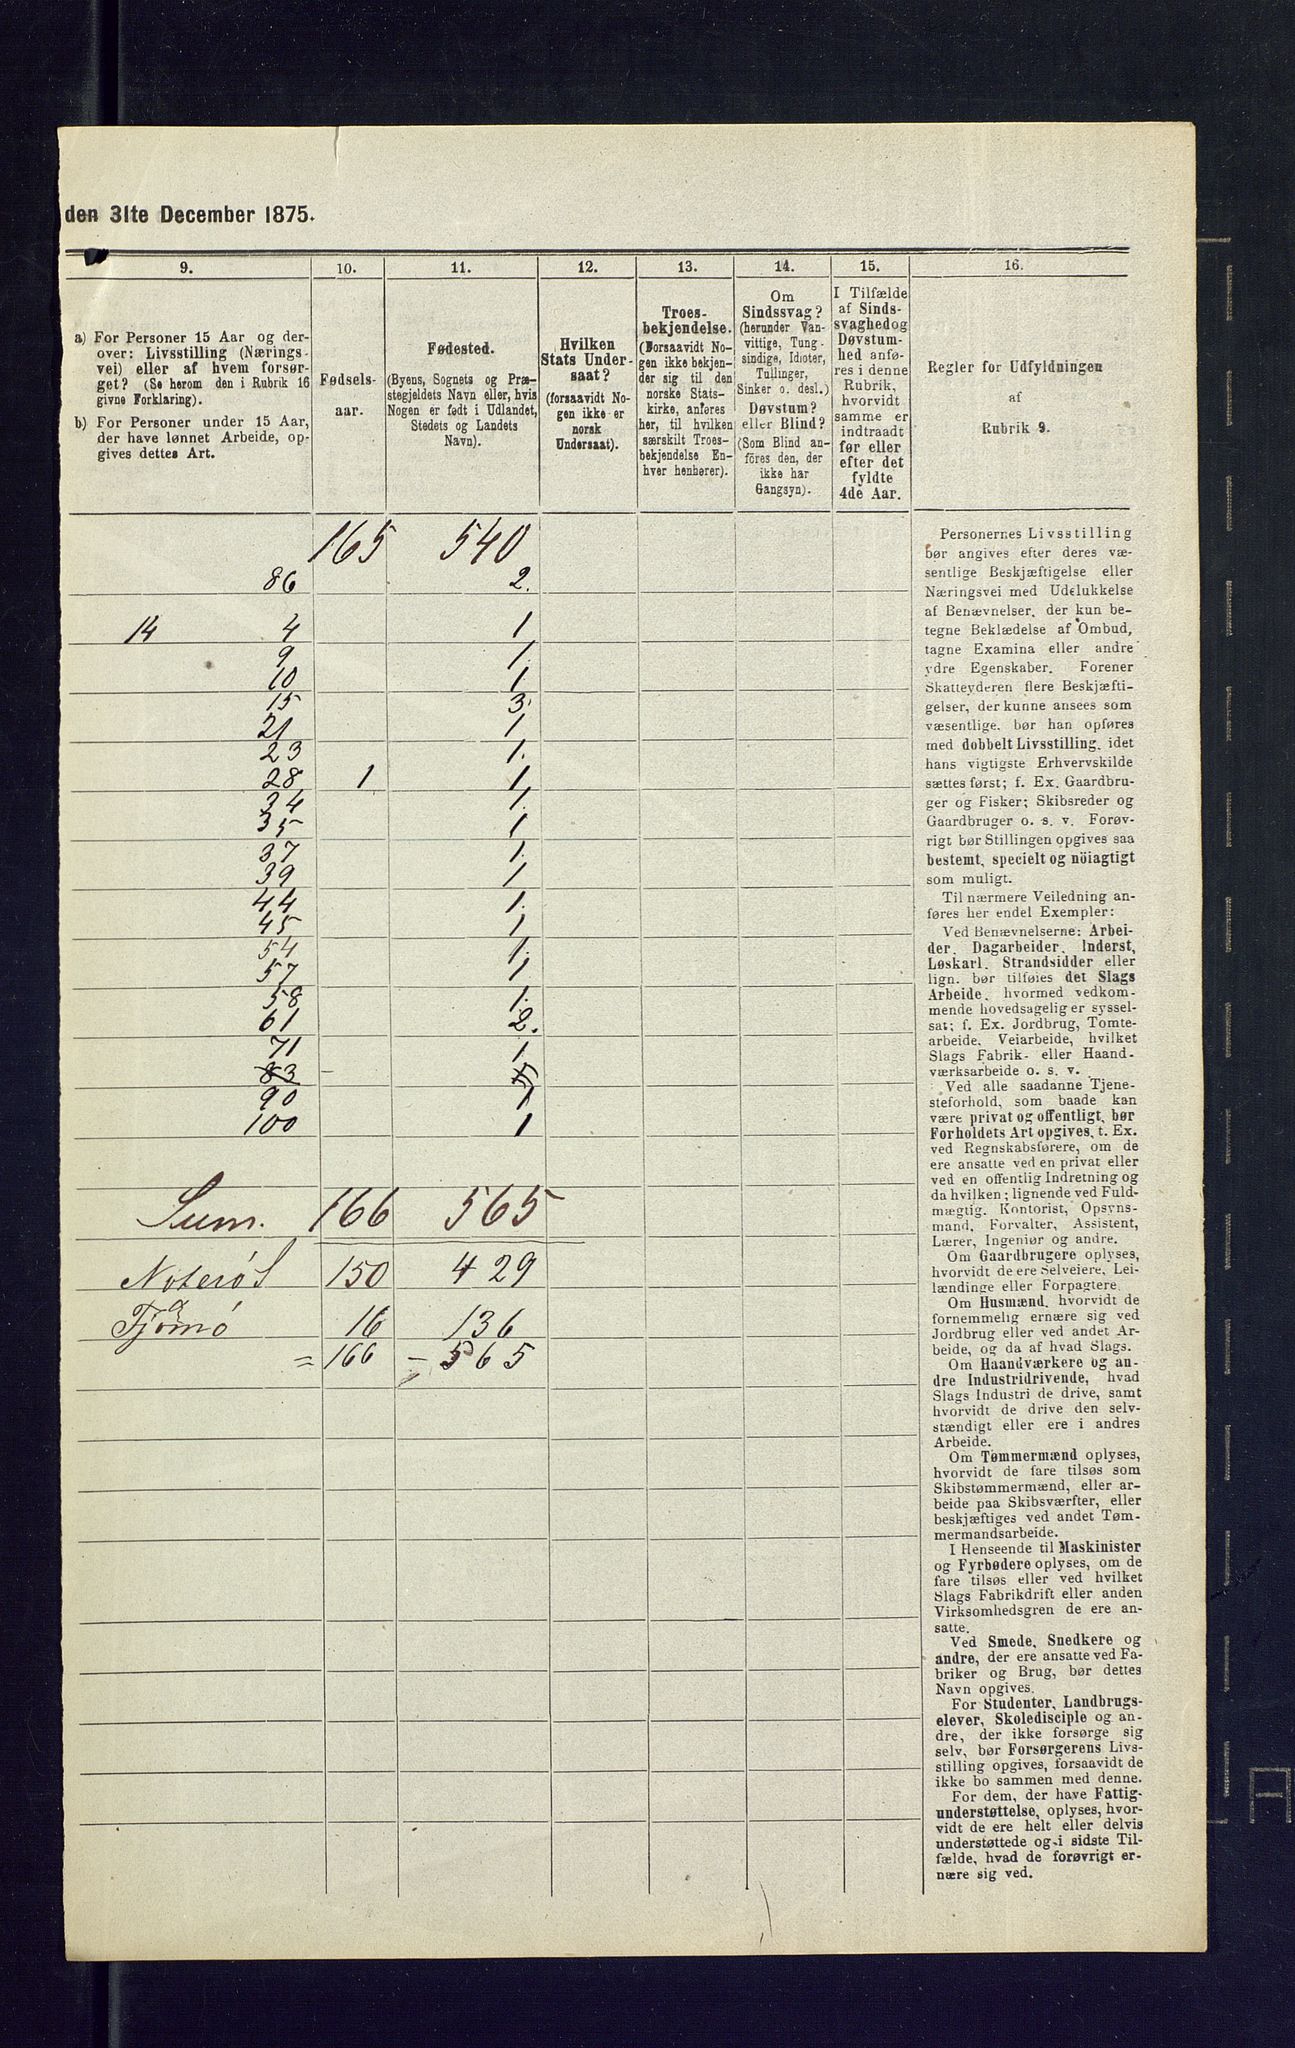 den 31te December 1875.
9.
10.
11.
12.
13.
14.
15.
16.
a) For Personer 15 Aar og der-
over: Livsstilling (Nærings-
vei) eller af hvem forsør-
get? (Se herom den i Rubrik 16
givne Forklaring).
b) For Personer under 15 Aar,
der have lønnet Arbeide, op-
gives dettes Art.
Fødsels-
aar.
Fødested.
(Byens, Sognets og Præ-
stegjeldets Navn eller, hvis
Nogen er født i Udlandet,
Stedets og Landets
Navn).
Hvilken
Stats Under-
saat?
(forsaavidt No-
gen ikke er
norsk
Undersaat).
Troes-
bekjendelse.
(Forsaavidt No-
gen ikke bekjen-
der sig til den
norske Stats-
kirke, anføres
her, til hvilken
særskilt Troes-
bekjendelse En-
hver henhører).
Om
Sindssvag?
(herunder Van-
vittige, Tung-
sindige, Idioter,
Tullinger,
Sinker o. desl.)
Døvstum?
eller Blind?
(Som Blind an-
føres den, der
ikke har
Gangsyn).
I Tilfælde
af Sinds-
svaghed og
Døvstum-
hed anfø-
res i denne
Rubrik,
hvorvidt
samme er
indtraadt
før eller
efter det
fyldte
4de Aar.
Regler for Udfyldningen
af
Rubrik 9.
165 540
86 2.
14 4 1
9 1.
10 1.
15 3.
21 1
23 1.
28 1 1
34 1.
35 1
37 1.
39 1
44 1.
45 1
54 1.
57 1
58 1.
61 2.
71 1
83
90 1
100 1
Sum. 166 565
Noterø 150 429
Tjømø 16 136
= 166 - 565
Personernes Livsstilling
bør angives efter deres væ-
sentlige Beskjæftigelse eller
Næringsvei med Udelukkelse
af Benævnelser, der kun be-
tegne Beklædelse af Ombud,
tagne Examina eller andre
ydre Egenskaber. Forener
Skatteyderen flere Beskjæfti-
gelser, der kunne ansees som
væsentlige, bør han opføres
med dobbelt Livsstilling, idet
hans vigtigste Erhvervskilde
sættes først; f. Ex. Gaardbru-
ger og Fisker; Skibsreder og
Gaardbruger o. s. v. Forøv-
rigt bør Stillingen opgives saa
bestemt, specielt og nöiagtigt
som muligt.
Til nærmere Veiledning an-
føres her endel Exempler:
Ved Benævnelserne: Arbei-
der, Dagarbeider, Inderst,
Løskarl, Strandsidder eller
lign. bør tilføies det Slags
Arbeide, hvormed vedkom-
mende hovedsagelig er syssel-
sat; f. Ex. Jordbrug, Tomte-
arbeide, Veiarbeide, hvilket
Slags Fabrik- eller Haand-
værksarbeide o. s. v.
Ved alle saadanne Tjene-
steforhold, som baade kan
være privat og offentligt, bør
Forholdets Art opgives, t. Ex.
ved Regnskabsførere, om de
ere ansatte ved en privat eller
ved en offentlig Indretning og
da hvilken; lignende ved Fuld-
mægtig, Kontorist, Opsyns-
mand, Forvalter, Assistent,
Lærer, Ingeniør og andre.
Om Gaardbrugere oplyses,
hvorvidt de ere Selveiere, Lei-
lændinge eller Forpagtere.
Om Husmænd, hvorvidt de
fornemmelig ernære sig ved
Jordbrug eller ved andet Ar-
beide, og da af hvad Slags.
Om Haandværkere og an-
dre Industridrivende, hvad
Slags Industri de drive, samt
hvorvidt de drive den selv-
stændigt eller ere i andres
Arbeide.
Om Tømmermænd oplyses,
hvorvidt de fare tilsøs som
Skibstømmermænd, eller ar-
beide paa Skibsværfter, eller
beskjæftiges ved andet Tøm-
mermandsarbeide.
I Henseende til Maskinister
og Fyrbødere oplyses, om de
fare tilsøs eller ved hvilket
Slags Fabrikdrift eller anden
Virksomhedsgren de ere an-
satte.
Ved Smede, Snedkere og
andre, der ere ansatte ved Fa-
briker og Brug, bør dettes
Navn opgives.
For Studenter, Landbrugs-
elever, Skoledisciple og an-
dre, der ikke forsørge sig
selv, bør Forsørgerens Livs-
stilling opgives, forsaavidt de
ikke bo sammen med denne.
For dem, der have Fattig-
understøttelse, oplyses, hvor-
vidt de ere helt eller delvis
understøttede og i sidste Til-
fælde, hvad de forøvrigt er-
nære sig ved.